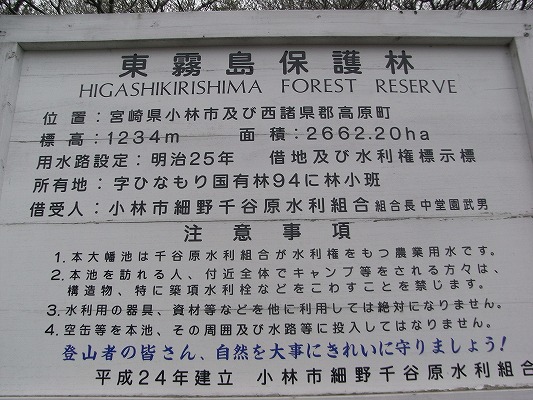 東霧島保護林
HIGASHIKIRISHIMA FOREST RESERVE
位置：宮崎県小林市及び西諸県郡高原町
標高：1234m 面積：2662.20ha
用水路設定：明治25年 借地及び水利権標示標
所有地：字ひなもり国有林94に林小班
借受人：小林市細野千谷原水利組合 組合長 中堂園武男
注意事項
1.本大幡池は千谷原水利組合が水利権をもつ農業用水です。
2.本池を訪れる人、付近全体でキャンプ等をされる方々は、
構造物、特に築項水利栓などをこわすことを禁じます。
3.水利用の器具、資材等などを他に利用しては絶対になりません。
4.空缶等を本池、その周囲及び水路等に投入してはなりません。
登山者の皆さん、自然を大事にきれいに守りましょう！
平成24年建立 小林市細野千谷原水利組合